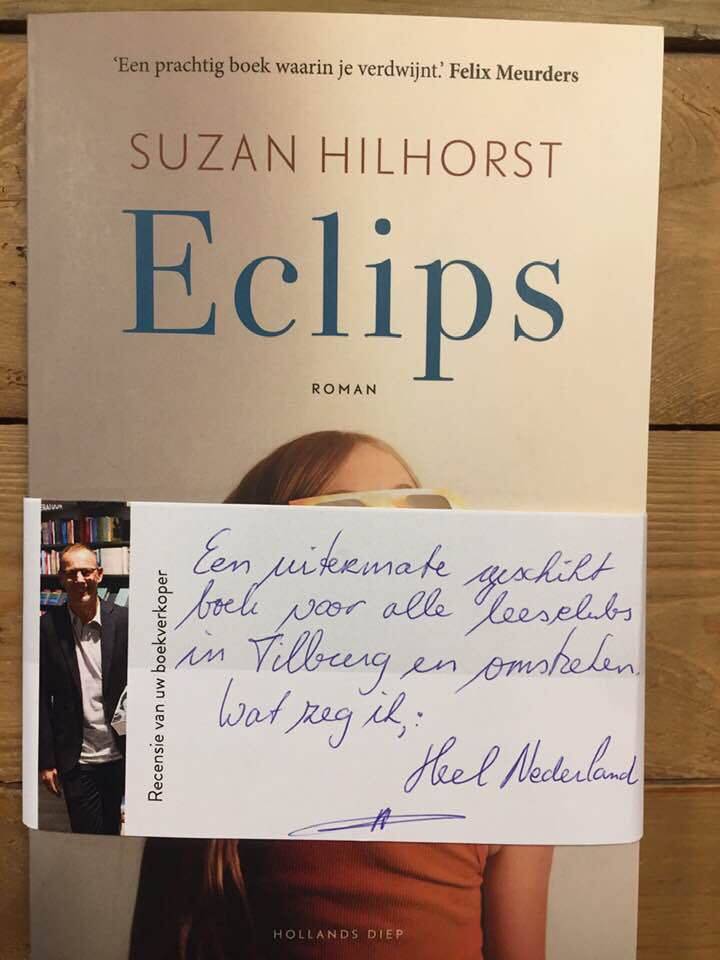 'Een prachtig boek waarin je verdwijnt.' Felix Meurders
SUZAN HILHORST
Eclips
ROMAN
Recensie van uw boekverkoper
Een uitermate geschikt
boek voor alle leesclubs
in Tilburg en omstreken.
Wat zeg ik,:
Heel Nederland
HOLLANDS DIEP